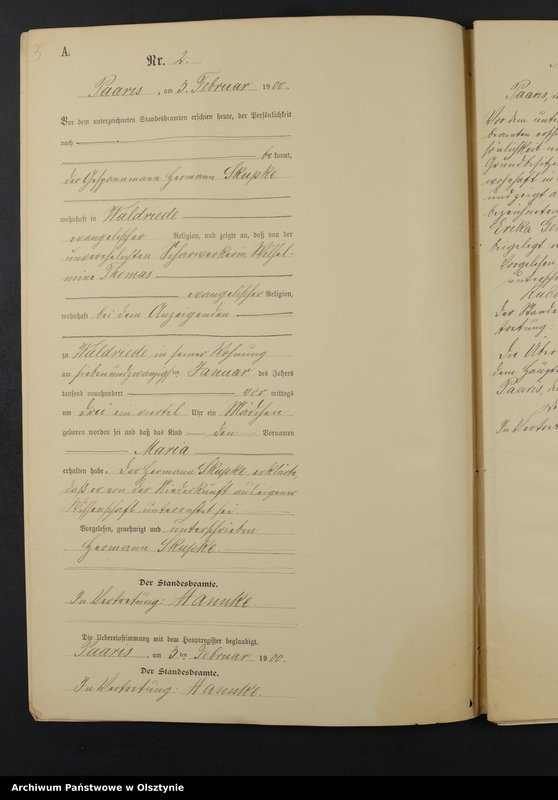 3
A.
Nr. 2.
Paaris, am 3. Februar 1900.
Vor dem unterzeichneten Standesbeamten erschien heute, der Persönlichkeit
nach
bekannt,
der Gespannmann Hermann Skupke
wohnhaft in Waldriede
evangelischer Religion, und zeigte an, daß von der
unverehelichten Scharwerkerin Wilhel-
mine Thomas
evangelischer Religion,
wohnhaft bei dem Anzeigenden
zu Waldriede in seiner Wohnung
am siebenundzwanzigsten Januar des Jahres
tausend neunhundert vormittags
um drei ein viertel Uhr ein Mädchen
geboren worden sei und daß das Kind den Vornamen
Maria
erhalten habe. Der Hermann Skupke erklärte,
daß er von der Niederkunft aus eigener
Wissenschaft unterrichtet sei.
Vorgelesen, genehmigt und unterschrieben
Hermann Skupke
Der Standesbeamte.
In Vertretung: Hannke.
Die Uebereinstimmung mit dem Hauptregister beglaubigt.
Paaris, am 3ten Februar 1900.
Der Standesbeamte.
In Vertretung: Hannke.
Paaris,
Vor dem
Erika
Vorgelesen
Der Stande
tretung
dem Haupt
Paaris, de
In Vertret
Archiwum Państwowe w Olsztynie